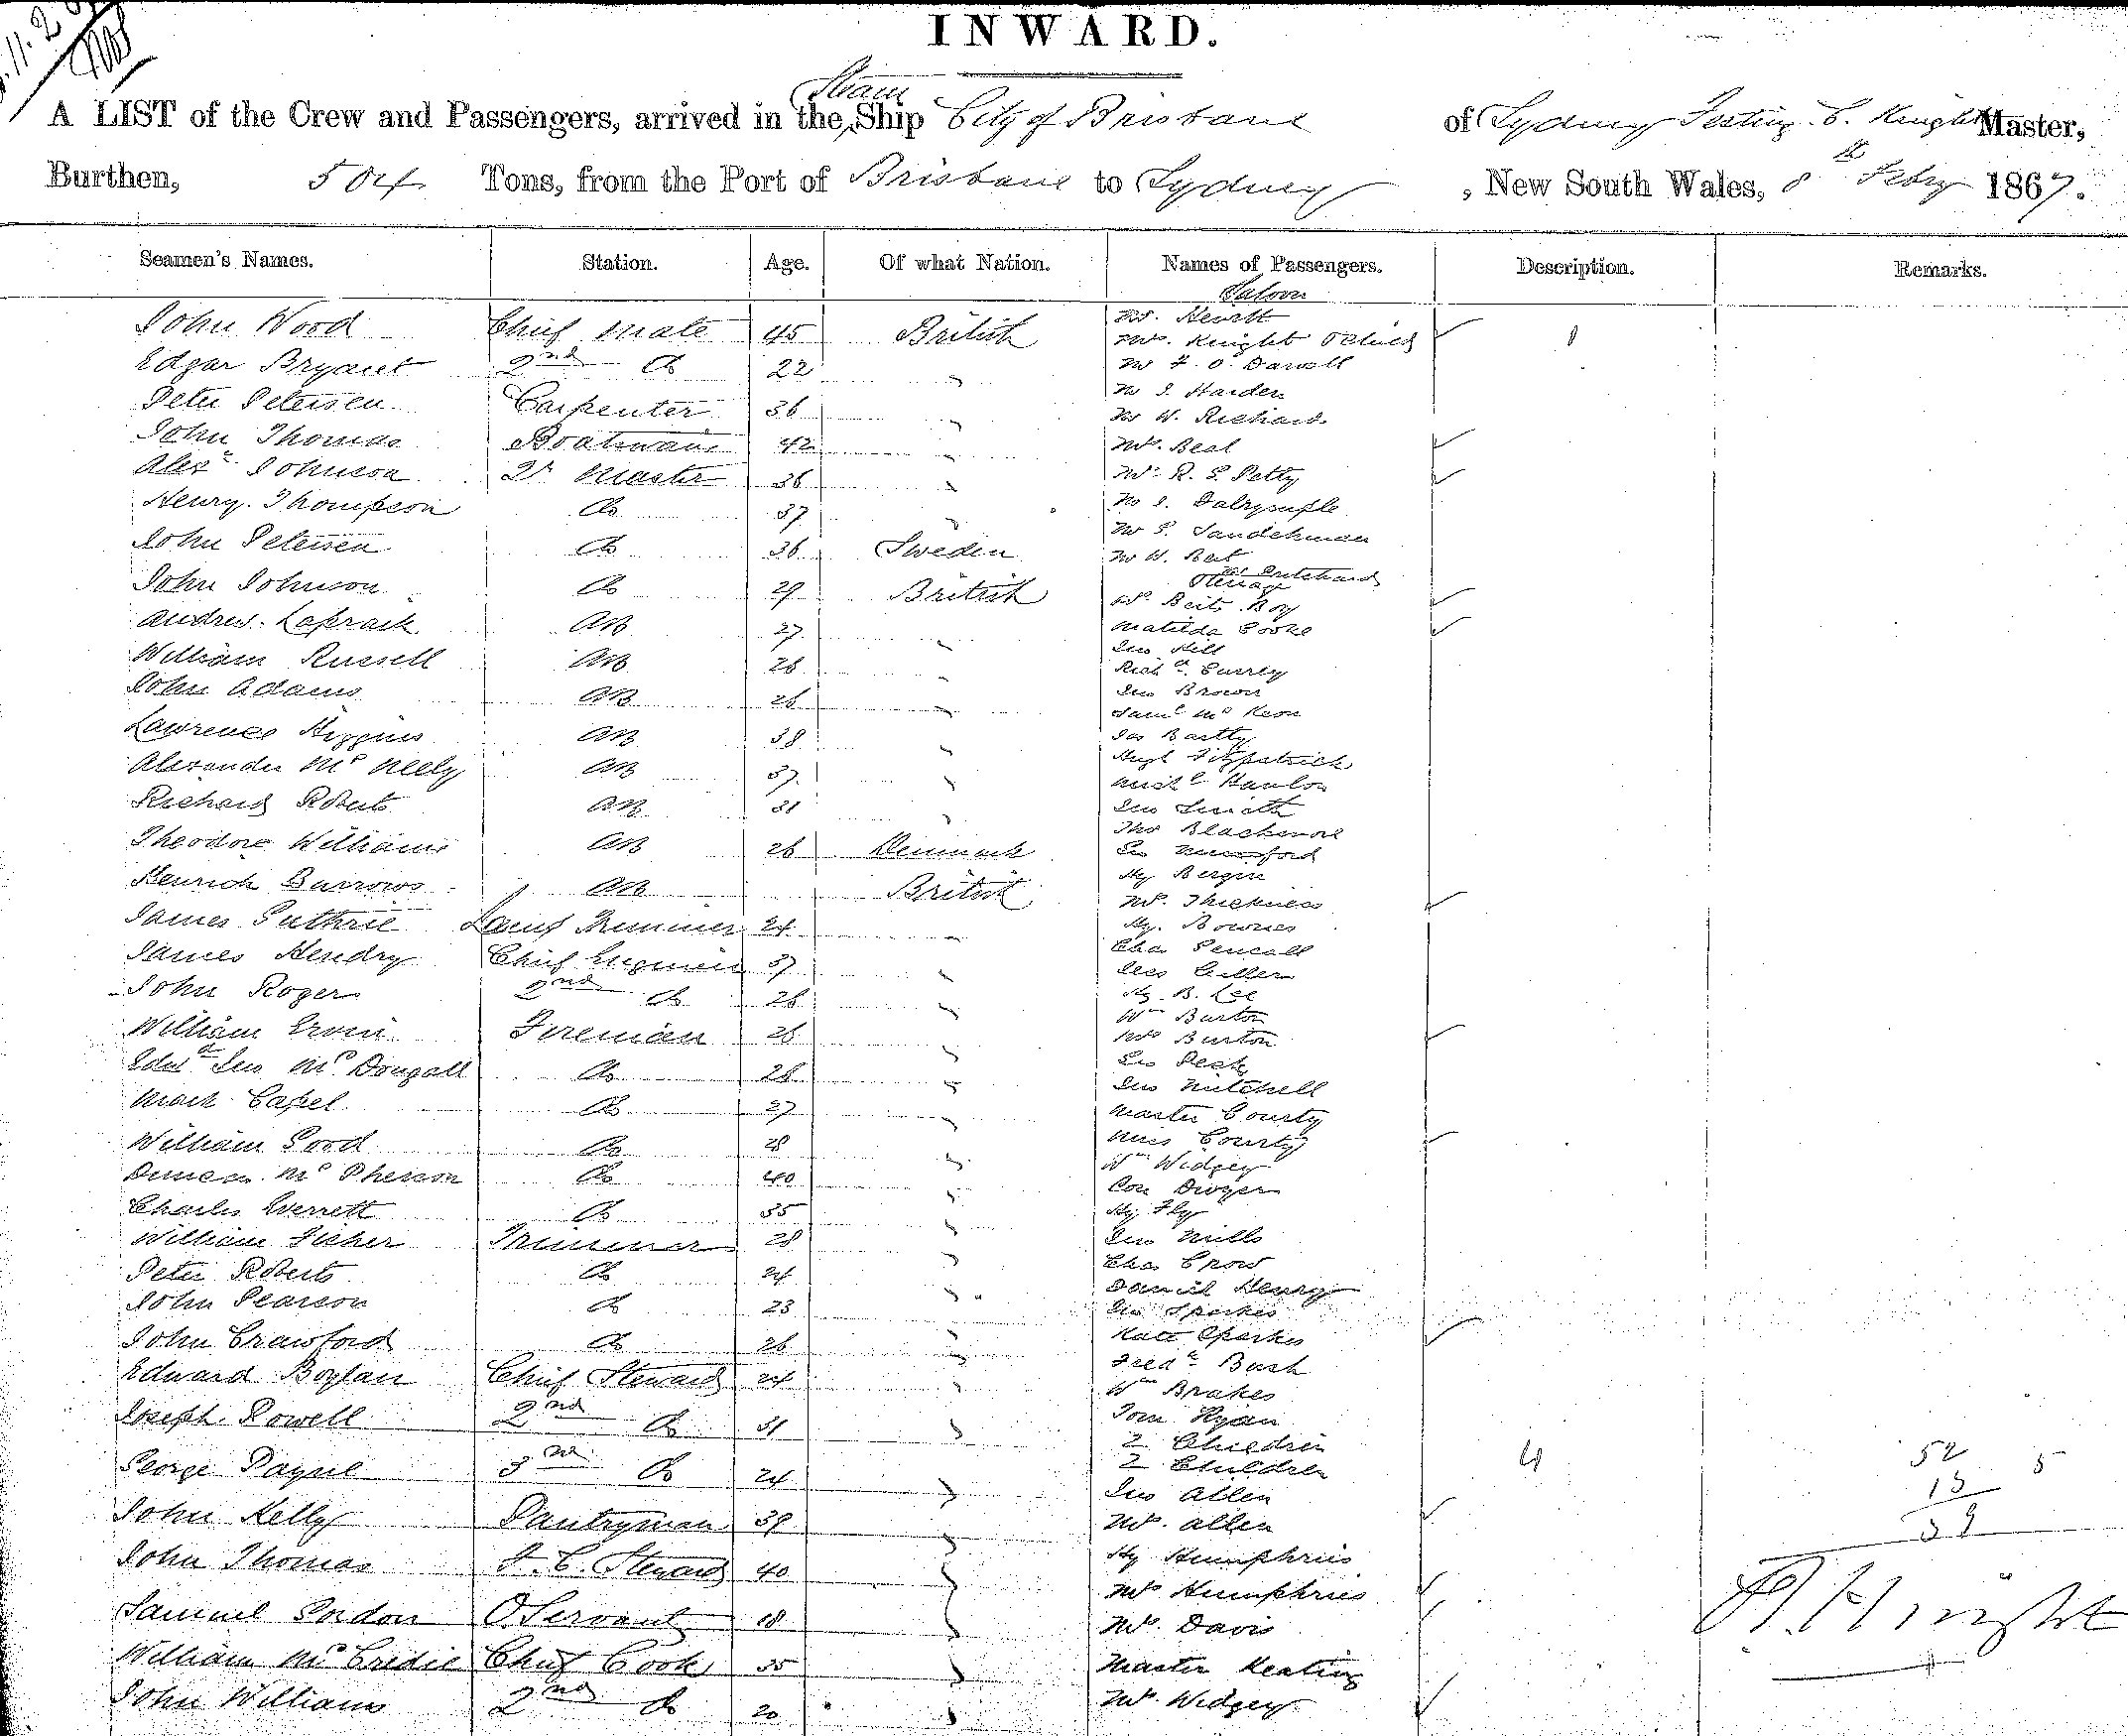 11. 2
INWARD.
Steam
A LIST of the Crew and Passengers, arrived in the Ship City of Brisbane of Sydney S. Knight Master,
Burthen, 504 Tons, from the Port of Brisbane to Sydney, New South Wales, 8th Feby 1867.
Seamen's Names. Station. Age. Of what Nation. Names of Passengers. Description. Remarks.
Saloon
John Wood Chief Mate 45 British
Mr. Hewitt
Mrs. Knight & Child 1
Edgar Bryant 2nd Do 22 "
Peter Petersen Carpenter 36 "
Mr J. Harden
Mr W. Richards
John Thomas Boatswain 42 "
Mrs. Beal
Alexr Johnson Qr Master 36 "
Mrs. R. S. Petty
Henry Thompson Do 37 "
Mr J. Dalrymple
John Petersen Do 36 Sweden
Mr W. Beit
Mr Pritchard
Steerage
John Johnson Do 29 British
Mrs. Beits Boy
Andrew AB 27 "
Matilda Cooke
Jno Hill
William Russell AB 26 "
Richd Currey
John Adams AB 26 "
Jno Brown
Saml McKeon
Lawrence Higgins AB 38 "
Jas
Hugh Fitzpatrick
Alexander McNeely AB 37 "
Michl Hanlon
Richard Roberts AB 31 "
Jno Smith
Thos Blackmore
Theodore Williams AB 26 Denmark
Hy Bergin
Henrich Burrows AB British
Mrs. Thickness
James Guthrie Lamp Trimmer 24 "
Hy. Bownes
Chas
James Hendry Chief Engineer 37 "
John Roger 2nd Do 26 "
Hy. B. Lee
Wm Burton
William Ervin Fireman 26 "
Mrs Burton
Edwd Jno McDougall Do 26 "
Jno Mitchell
Mark Capel Do 27 "
Master Courty
William Good Do 28 "
Miss Courty
Wm Widgey
Duncan McPherson Do 40 "
Con Dwyer
Charles Everett Do 35 "
Hy. Fly
William Fisher Trimmer 28 "
Jno Mills
Chas Crow
Peter Roberts Do 24 "
Daniel Henry
John Pearson Do 23 "
Jno Sparkes
John Crawford Do 26 "
Kate Sparkes
Fredk Bush
Edward Boylan Chief Steward 24 "
Wm Brakes
Tom Ryan
Joseph Powell 2nd Do 31 "
2 Children
2 Children 4 52 5
George Payne 3rd Do 24 "
13
Jno Allen
39
John Kelly Pantryman 39 "
Mrs. Allen
Hy Humphries
John Thomas F. C. Steward 40 "
Mrs Humphries
Samuel Gordon O Servant 18 "
Mrs. Davis
William McCredie Chief Cook 35 "
Master Keating
John Williams 2nd Do 20 "
Mrs. Widgey
Knight